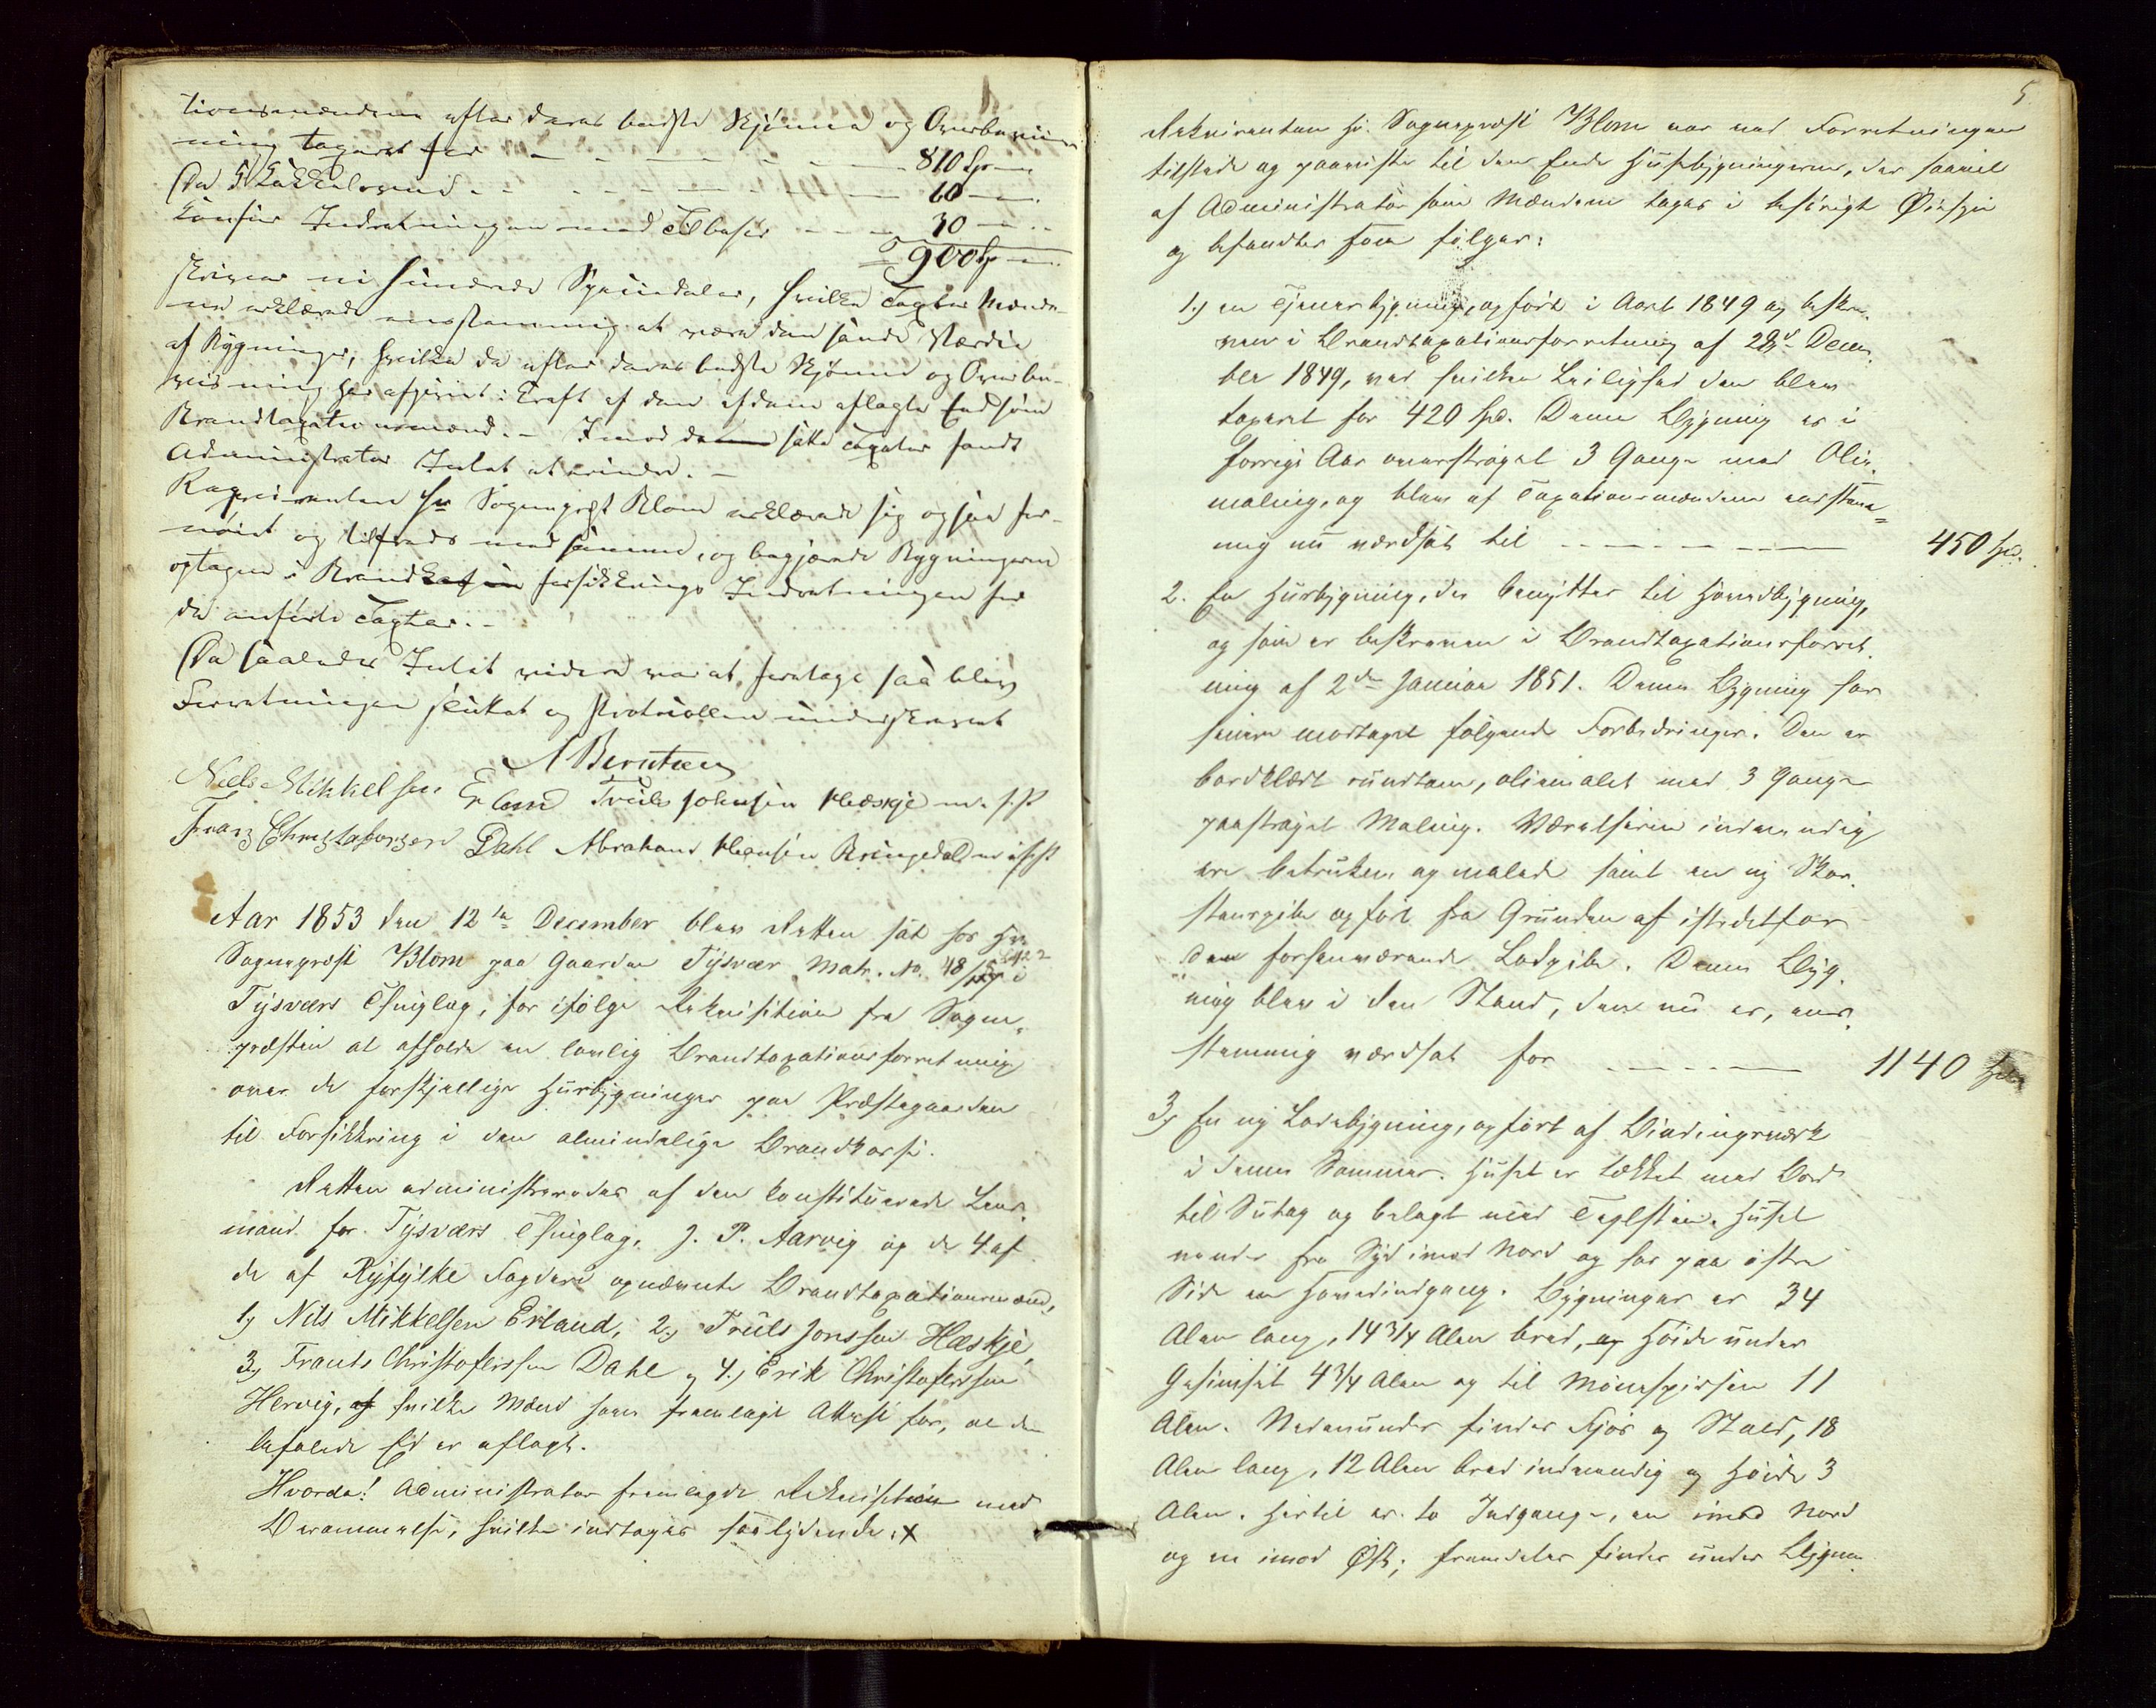 tionsmændene efter deres bedste Skjönne og Overbeviis
ning taxeret for - - - - - - - 810 Sp -
De 5 Kakkelovne - - - - - - - 60 -
Kjönsens Indretningen med Tilbehör - - - 30 - -
900 Sp -
skriver ni hundrede Speciedaler, hvilken Taxter Mænde-
ne erklærede eenstemmig at være den sande Værdie
af Bygninger, hvilke de efter deres bedste Skjönne og Overbe-
visning har afgivet i Kraft af den af dem aflagte Eed som
Brandtaxationsmænd. - Imod denne satte Taxter fandt
Administrator Intet at erindre. -
Requirenten Hr Sogneprest Blom erklærede sig ogsaa for-
nöiet og tilfreds med samme, og begjærede Bygningerne
optagen i Brandkassen forsikkrings Indretningen for
de anförte Taxter. -
Da saaledes Intet videre var at foretage saa blev
Forretningen sluttet og Protocollen underskrevet
A Berntsen
Niels Mikkelsen Erland Truls Johnsen Hæskje m. f. P
Franz Christofersen Dahl Abraham Hansen Bringedal m i f P
Aar 1853 den 12te December blev Retten sat hos Hr.
Sogneprest Blom paa Gaarden Tysvær Matr. No. 48/ i
Tysværs Thinglag, for ifölge Rekvisition fra Sogne-
præsten at afholde en lovlig Brandtaxationsforretning
over de forskjellige Huusbygninger paa Præstegaarden
til Forsikkring i den almindelige Brandkasse.
Retten administreredes af den konstituerede Lens-
mand for Tysværs Thinglag, J. P. Aarvig og de 4 af
de af Ryfylke Fogderi opnævnte Brandtaxationsmænd,
1, Nils Mikkelsen Erland, 2, Truls Jonssen Hæskje,
3, Frants Christoferssen Dahl og 4, Erik Christoferssen
Hervig, af hvilke Mænd som fremlagt Attest for, at den
befalede Ed er aflagt.
Hvorda! Administrator fremlagde Rekvisition med
Berammelse, hvilke indtages saalydende: x
5
Rekvirenten Hr. Sognepræst Blom var ved Forretningen
tilstede og paaviste til den Ende Huusbygningerne, der saavel
af Administrator som Mændene toges i behörigt Öiesyn
og befandtes som fölger:
1, en Tjenerbygning, opfört i Aaret 1849 og beskre-
ven i Brandtaxationsforretning af 28de Decem-
ber 1849, ved hvilken Leilighed den blev
taxeret for 420 Spd. Denne Bygning er i
forrige Aar overströget 3 Gange med Olie-
maling, og blev af Taxationsmændene eenstem-
mig nu værdsat til - - - - - 450 Spd.
2. En Huusbygning, der benyttes til Hovedbygning,
og som er beskreven i Brandtaxationsforret-
ning af 2den Januar 1851. Denne Bygning har
senere modtaget fölgende Forbedringer. Den er
bordklædt rundtom, oliemalet med 3 Gange
paaströget Maling. Værelserne indvendig
ere betrukne og malede samt en ny Skor-
stenspibe opfört fra Grunden af istedetfor
den forhenværende Ladpibe. Denne Byg-
ning blev i den Stand, den nu er, een-
stemmig værdsat for - - - - - 1140 Spd
3, En ny Ladebygning, opfört af Bindingsværk
i denne Sommer. Huset er tækket med Bord
til Sutag og belagt med Teglsteen. Huset
vender fra Syd imod Nord og har paa östre
Side en Hovedindgang. Bygningen er 34
Alen lang, 14 3/4 Alen bred, og Höide under
Gesimset 4 3/4 Alen og til Mönespidsen 11
Alen. Nedenunder findes Fjös og Stald, 18
Alen lang, 12 Alen bred indvendig og Höide 3
Alen. Hertil er to Indgange, en imod Nord
og en imod Öst; fremdeles findes under Bygnin-